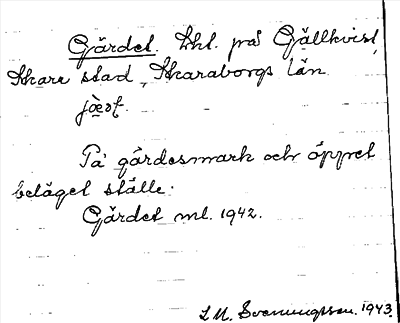 Gärdet. Lht. på Gällkvist,
Skara stad, Skaraborgs län
jæṣt.
På gärdesmark och öppet
beläget ställe.
Gärdet ml. 1942.
L M. Svenungsson. 1943.